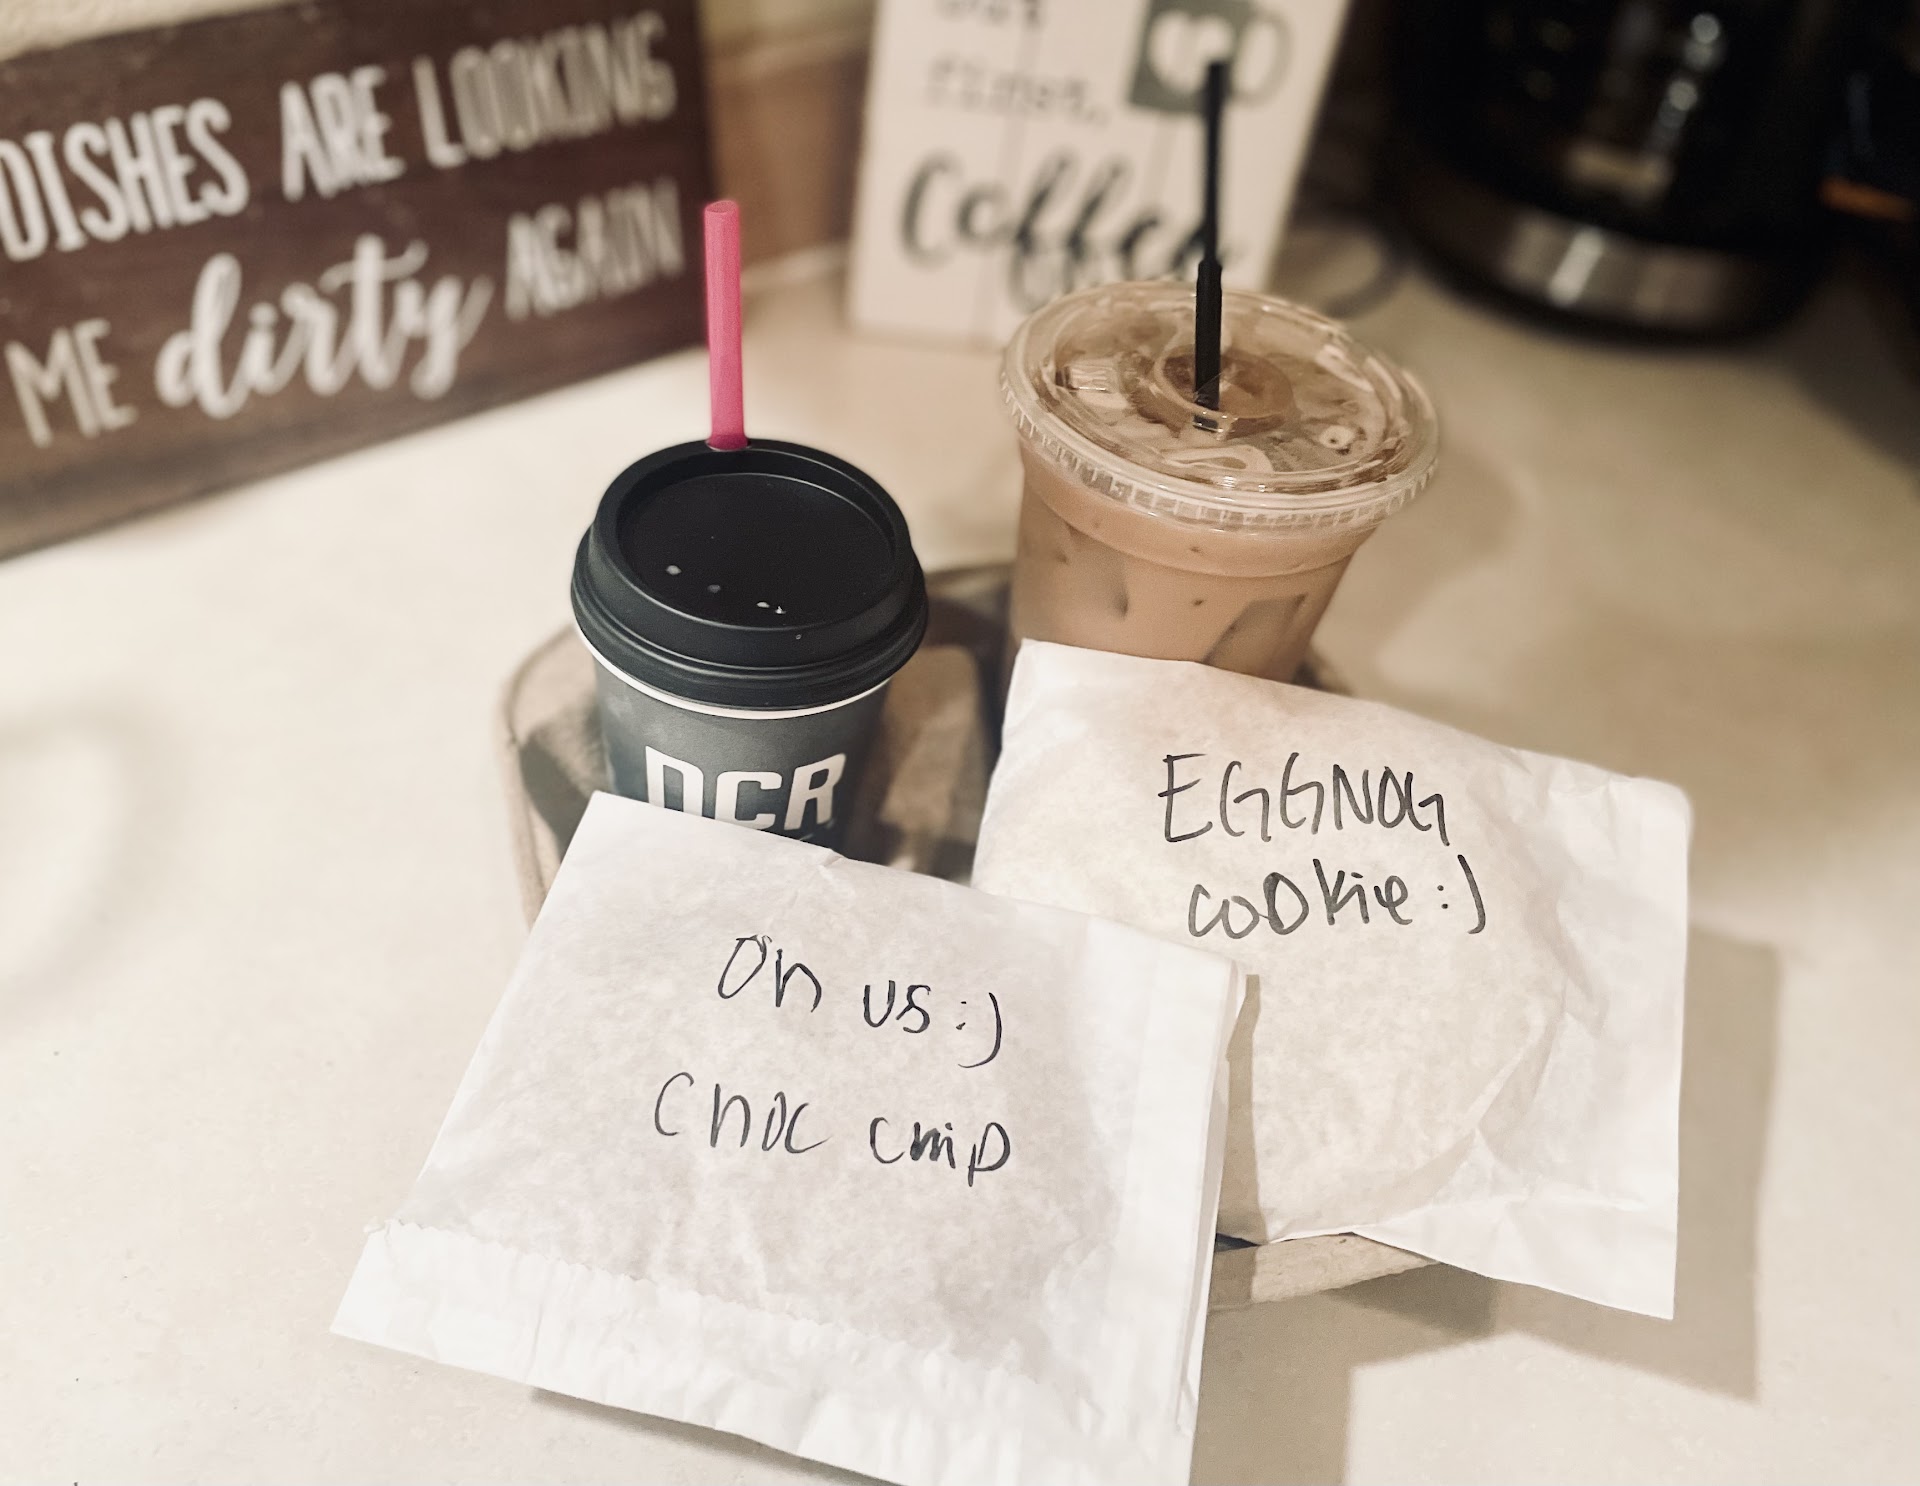 DISHES ARE LOOKING
ME dirty AGAIN
but
first,
Coffee
DCR
EGGNOG
cookie :)
On us :)
Choc chip